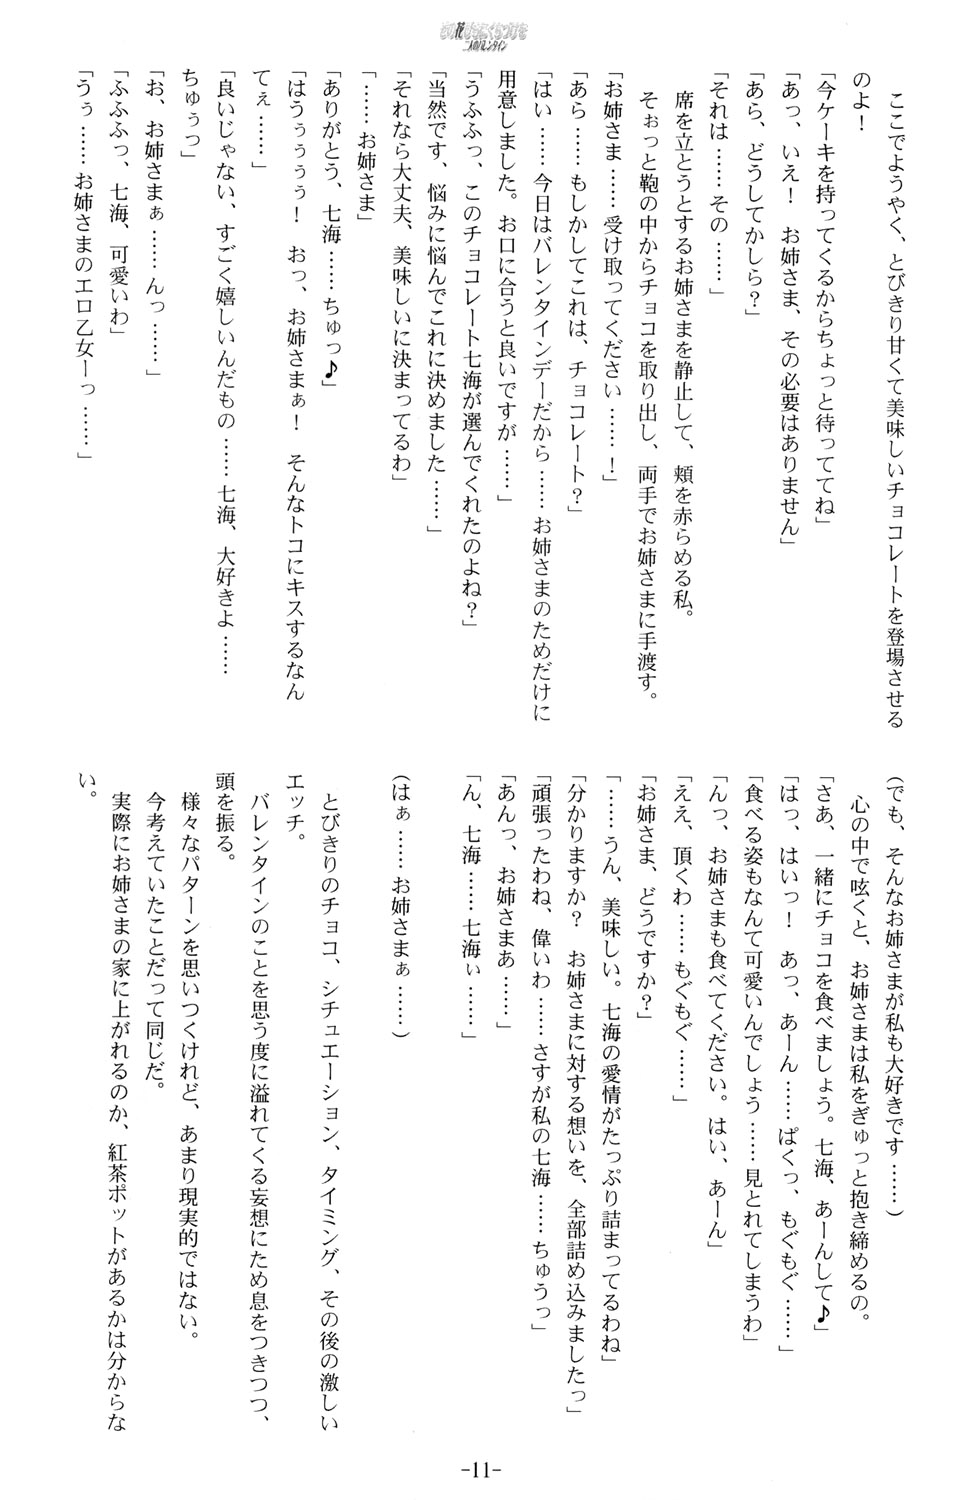 ここでようやく、とびきり甘くて美味しいチョコレートを登場させる
のよ！
「今ケーキを持ってくるからちょっと待っててね」
「あっ、いえ！　お姉さま、その必要はありません」
「あら、どうしてかしら？」
「それは……その……」
席を立とうとするお姉さまを静止して、頬を赤らめる私。
そぉっと鞄の中からチョコを取り出し、両手でお姉さまに手渡す。
「お姉さま……受け取ってください……！」
「あら……もしかしてこれは、チョコレート？」
「はい……今日はバレンタインデーだから……お姉さまのためだけに
用意しました。お口に合うと良いですが……」
「うふふっ、このチョコレート七海が選んでくれたのよね？」
「当然です、悩みに悩んでこれに決めました……」
「それなら大丈夫、美味しいに決まってるわ」
「……お姉さま」
「ありがとう、七海……ちゅっ♪」
「はうぅぅぅぅ！　おっ、お姉さまぁ！　そんなトコにキスするなん
てぇ……」
「良いじゃない、すごく嬉しいんだもの……七海、大好きよ……
ちゅぅっ」
「お、お姉さまぁ……んっ……」
「ふふふっ、七海、可愛いわ」
「うぅ……お姉さまのエロ乙女ーっ……」
（でも、そんなお姉さまが私も大好きです……）
心の中で呟くと、お姉さまは私をぎゅっと抱き締めるの。
「さあ、一緒にチョコを食べましょう。七海、あーんして♪」
「はっ、はいっ！　あっ、あーん……ぱくっ、もぐもぐ……」
「食べる姿もなんて可愛いんでしょう……見とれてしまうわ」
「んっ、お姉さまも食べてください。はい、あーん」
「ええ、頂くわ……もぐもぐ……」
「お姉さま、どうですか？」
「……うん、美味しい。七海の愛情がたっぷり詰まってるわね」
「分かりますか？　お姉さまに対する想いを、全部詰め込みましたっ」
「頑張ったわね、偉いわ……さすが私の七海……ちゅうっ」
「あんっ、お姉さまあ……」
「ん、七海……七海ぃ……」
（はぁ……お姉さまぁ……）
とびきりのチョコ、シチュエーション、タイミング、その後の激しい
エッチ。
バレンタインのことを思う度に溢れてくる妄想にため息をつきつつ、
頭を振る。
様々なパターンを思いつくけれど、あまり現実的ではない。
今考えていたことだって同じだ。
実際にお姉さまの家に上がれるのか、紅茶ポットがあるかは分からな
い。
-11-